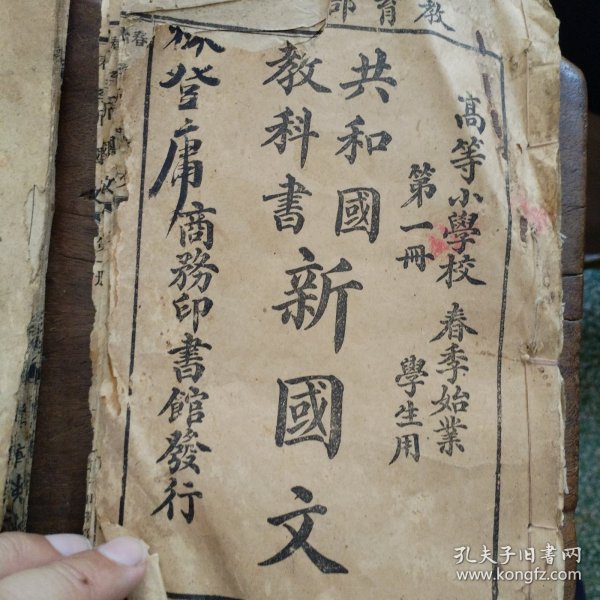 教育部
高等小學校 春季始業
學生用
第一冊
共和國
教科書
新國文
登庸
商務印書館發行
孔夫子旧书网
www.kongfz.com